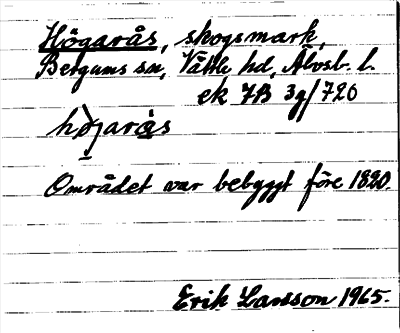 Högarås, skogsmark,
Bergums sn, Vättle hd, Älvsb. l.
ek 7B 3g/720
Området var bebyggt före 1820.
Erik Larsson 1965.